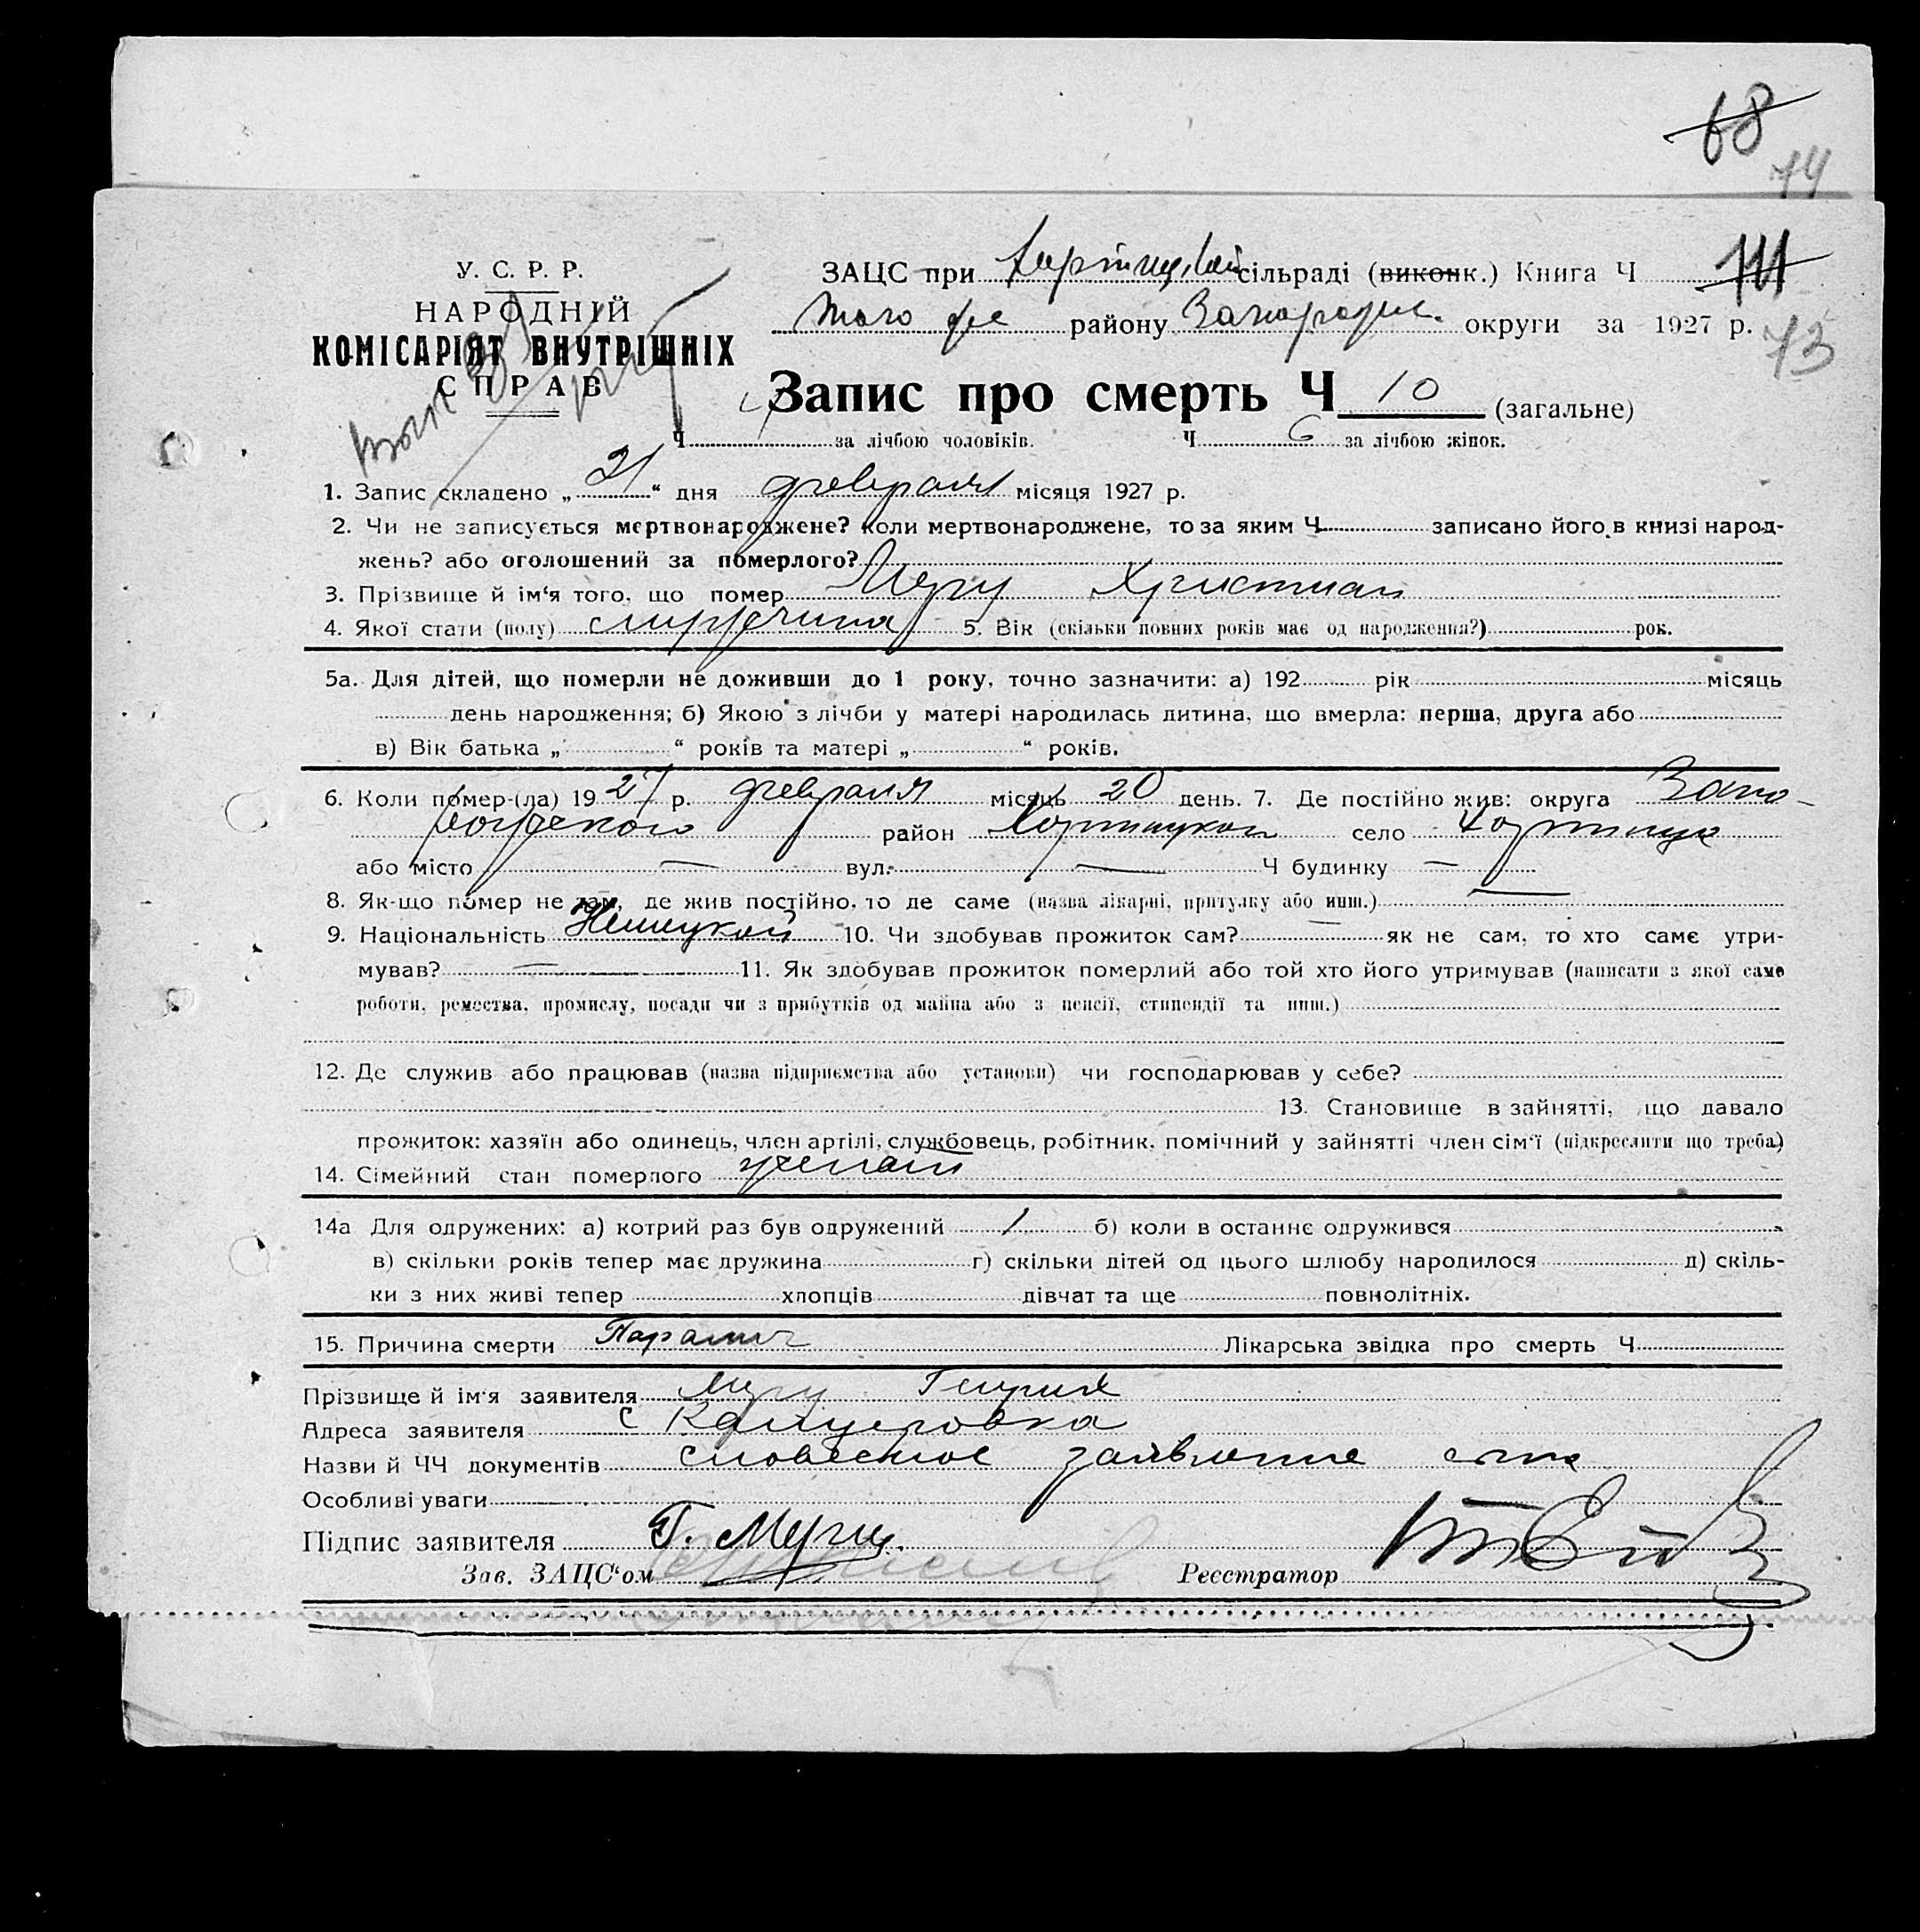 68
74
У. С. Р. Р.
НАРОДНІЙ
КОМІСАРІЯТ ВНУТРІШНІХ
СПРАВ
ЗАЦС при Хортицькій сільраді (виконк.) Книга Ч 111
того же району Запорожс. округи за 1927 р.
73
Запис про смерть Ч 10 (загальне)
Ч за лічбою чоловіків. Ч 6 за лічбою жінок.
1. Запис складено „ 21 “ дня февраля місяця 1927 р.
2. Чи не записується мертвонароджене? коли мертвонароджене, то за яким Ч записано його в книзі народ-
жень? або оголошений за померлого?
3. Прізвище й ім‘я того, що помер Мерц Христиан
4. Якої стати (полу) мужчина 5. Вік (скільки повних років має од народження?) рок.
5а. Для дітей, що померли не доживши до 1 року, точно зазначити: а) 192 рік місяць
день народження; б) Якою з лічби у матері народилась дитина, що вмерла: перша, друга або
в) Вік батька „ “ років та матері „ “ років.
6. Коли помер-(ла) 19 27 р. февраля місяць 20 день. 7. Де постійно жив: округа Запо-
рожского район Хортицкой село Хортица
або місто — вул. — Ч будинку —
8. Як-що помер не там, де жив постійно, то де саме (назва лікарні, притулку або инш.) —
9. Національність Немецкой 10. Чи здобував прожиток сам? — як не сам, то хто саме утри-
мував? — 11. Як здобував прожиток померлий або той хто його утримував (написати з якої саме
роботи, ремества, промислу, посади чи з прибутків од майна або з пенсії, стипендії та инш.)
12. Де служив або працював (назва підприємства або установи) чи господарював у себе?
13. Становище в зайнятті, що давало
прожиток: хазяїн або одинець, член артілі, службовець, робітник, помічний у зайнятті член сім‘ї (підкреслити що треба)
14. Сімейний стан померлого женат
14а Для одружених: а) котрий раз був одружений 1 б) коли в останнє одружився
в) скільки років тепер має дружина г) скільки дітей од цього шлюбу народилося д) скіль-
ки з них живі тепер хлопців дівчат та ще повнолітніх.
15. Причина смерти Паралич Лікарська звідка про смерть Ч
Прізвище й ім‘я заявителя Мерц Генрих
Адреса заявителя с Канцеровка
Назви й ЧЧ документів словесное заявление сына
Особливі уваги
Підпис заявителя Г. Мерц.
Зав. ЗАЦС‘ом Реєстратор